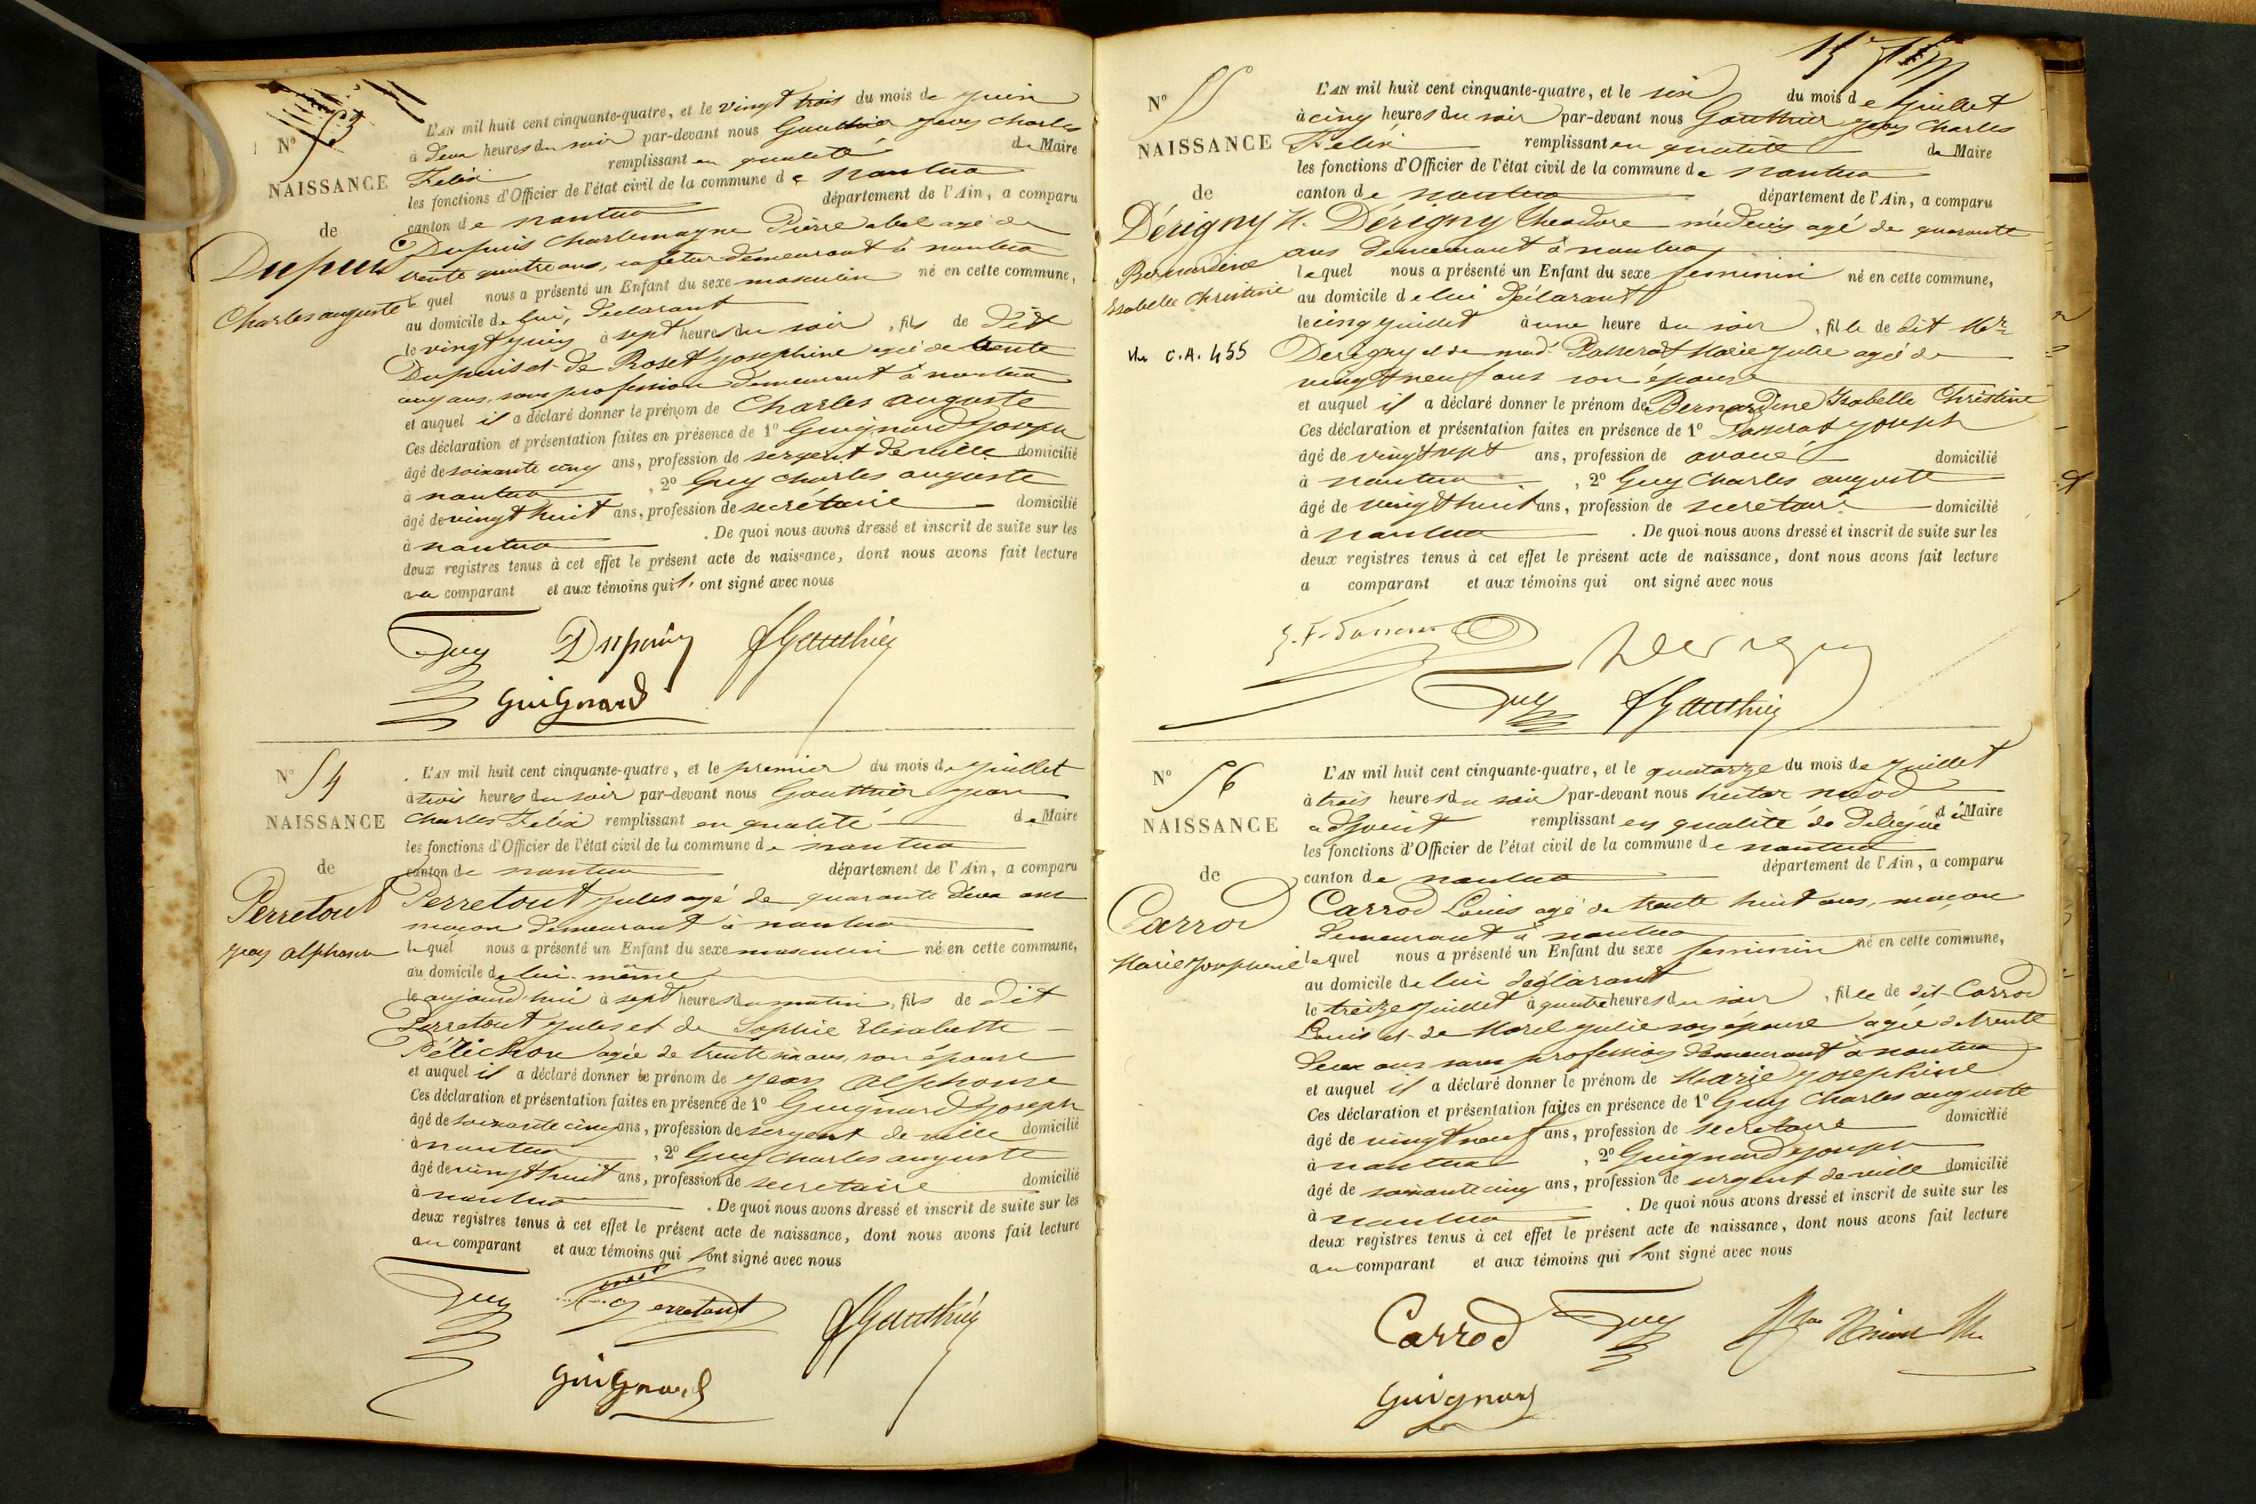 N° 53
NAISSANCE
de
Dupuis
Charles auguste
L'AN mil huit cent cinquante-quatre, et le vingt trois du mois de juin
à deux heures du soir par-devant nous Gauthier jean charles
Felix remplissant en qualité de Maire
les fonctions d'Officier de l'état civil de la commune de nantua
canton de nantua département de l'Ain, a comparu
Dupuis Charlemagne Pierre abel agé de
trente quatre ans, cafetier demeurant à nantua
lequel nous a présenté un Enfant du sexe masculin né en cette commune,
au domicile de lui, déclarant
le vingt juin à sept heures du soir, fils de dit
Dupuis et de Roset josephine agée de trente
cinq ans, sans profession demeurant à nantua
et auquel il a déclaré donner le prénom de Charles auguste
Ces déclaration et présentation faites en présence de 1° Guignard joseph
âgé de soixante cinq ans, profession de sergent de ville domicilié
à nantua, 2° Guy charles auguste
âgé de vingt huit ans, profession de secrétaire domicilié
à nantua. De quoi nous avons dressé et inscrit de suite sur les
deux registres tenus à cet effet le présent acte de naissance, dont nous avons fait lecture
au comparant et aux témoins qui l'ont signé avec nous
Guy Dupuis f Gauthier
Guignard
N° 54
NAISSANCE
de
Perretout
jean alphonse
L'AN mil huit cent cinquante-quatre, et le premier du mois de juillet
à trois heures du soir par-devant nous Gauthier jean
Charles Félix remplissant en qualité de Maire
les fonctions d'Officier de l'état civil de la commune de nantua
canton de nantua département de l'Ain, a comparu
Perretout jules agé de quarante deux ans
maçon demeurant à nantua
lequel nous a présenté un Enfant du sexe masculin né en cette commune,
au domicile de lui-même
le aujourd'hui à sept heures du matin, fils de dit
Perretout jules et de Sophie Elisabette
Pétichon agée de trente six ans, son épouse
et auquel il a déclaré donner le prénom de jean alphonse
Ces déclaration et présentation faites en présence de 1° Guignard joseph
âgé de soixante cinq ans, profession de sergent de ville domicilié
à nantua, 2° Guy charles auguste
âgé de vingt huit ans, profession de secretaire domicilié
à nantua. De quoi nous avons dressé et inscrit de suite sur les
deux registres tenus à cet effet le présent acte de naissance, dont nous avons fait lecture
au comparant et aux témoins qui l'ont signé avec nous
Guy Perretout f Gauthier
Guignard
N° 55
NAISSANCE
de
Dérigny
Bernardine
Isabelle Christine
C.A. 455
L'AN mil huit cent cinquante-quatre, et le six du mois de juillet
à cinq heures du soir par-devant nous Gauthier jean Charles
Felix remplissant en qualité de Maire
les fonctions d'Officier de l'état civil de la commune de nantua
canton de nantua département de l'Ain, a comparu
M. Dérigny théodore médecin agé de quarante
ans demeurant à nantua
lequel nous a présenté un Enfant du sexe feminin né en cette commune,
au domicile de lui déclarant
le cinq juillet à une heure du soir, fille de dit Mr
Derigny et de mad. Passerat Marie julie agée de
vingt neuf ans son épouse
et auquel il a déclaré donner le prénom de Bernardine Isabelle Christine
Ces déclaration et présentation faites en présence de 1° Passerat joseph
âgé de vingt sept ans, profession de avoué domicilié
à nantua, 2° Guy Charles auguste
âgé de vingt huit ans, profession de secretaire domicilié
à nantua. De quoi nous avons dressé et inscrit de suite sur les
deux registres tenus à cet effet le présent acte de naissance, dont nous avons fait lecture
a comparant et aux témoins qui ont signé avec nous
Derigny
Guy f Gauthier
N° 56
NAISSANCE
de
Carrod
Marie Josephine
L'AN mil huit cent cinquante-quatre, et le quatorze du mois de juillet
à trois heures du soir par-devant nous hector
adjoint remplissant en qualité de Délégué de Maire
les fonctions d'Officier de l'état civil de la commune de nantua
canton de nantua département de l'Ain, a comparu
Carrod Louis agé de trente huit ans, maçon
demeurant à nantua
lequel nous a présenté un Enfant du sexe feminin né en cette commune,
au domicile de lui déclarant
le treize juillet à quatre heures du soir, fille de dit Carrod
Louis et de Morel julie son épouse agée de trente
deux ans sans profession demeurant à nantua
et auquel il a déclaré donner le prénom de Marie josephine
Ces déclaration et présentation faites en présence de 1° Guy Charles auguste
âgé de vingt neuf ans, profession de secretaire domicilié
à nantua, 2° Guignard joseph
âgé de soixante cinq ans, profession de sergent de ville domicilié
à nantua. De quoi nous avons dressé et inscrit de suite sur les
deux registres tenus à cet effet le présent acte de naissance, dont nous avons fait lecture
au comparant et aux témoins qui l'ont signé avec nous
Carrod Guy
Guignard